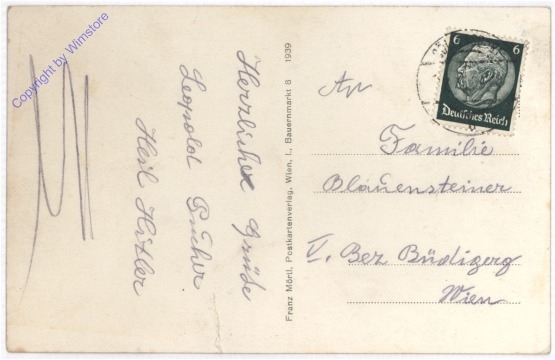 Copyright by Wimstore
Herzlichste Grüße
Leopold Bucher.
Heil Hitler
Franz Mörtl, Postkartenverlag, Wien, I., Bauernmarkt 8 1939
An
Familie
Blauensteiner
V. Bez
Wien
6 6
Deutsches Reich